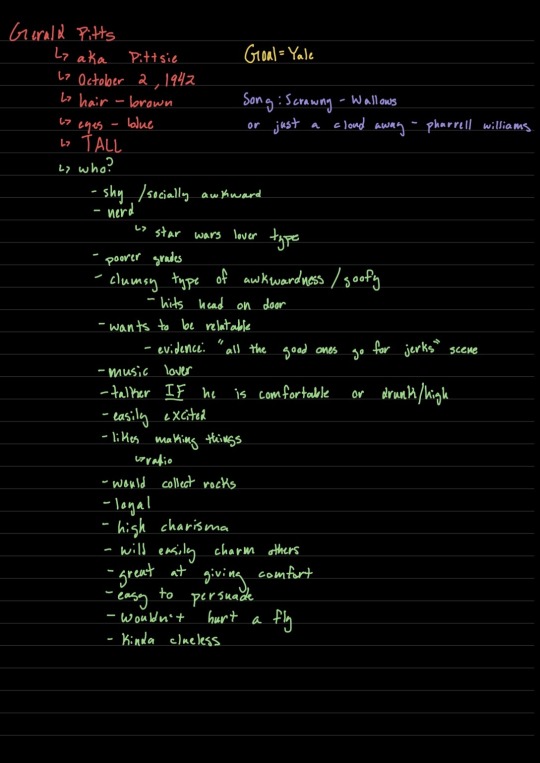 Gerald Pitts
↳ aka Pittsie
Goal = Yale
↳ October 2, 1942
↳ hair - brown
Song: Scrawny - Wallows
↳ eyes - blue
or just a cloud away - pharrell williams
↳ TALL
↳ who?
- shy /socially awkward
- nerd
↳ star wars lover type
- poorer grades
- clumsy type of awkwardness / goofy
- hits head on door
- wants to be relatable
- evidence: "all the good ones go for jerks" scene
- music lover
- talker IF he is comfortable or drunk/high
- easily excited
- likes making things
↳ radio
- would collect rocks
- loyal
- high charisma
- will easily charm others
- great at giving comfort
- easy to persuade
- wouldn't hurt a fly
- kinda clueless